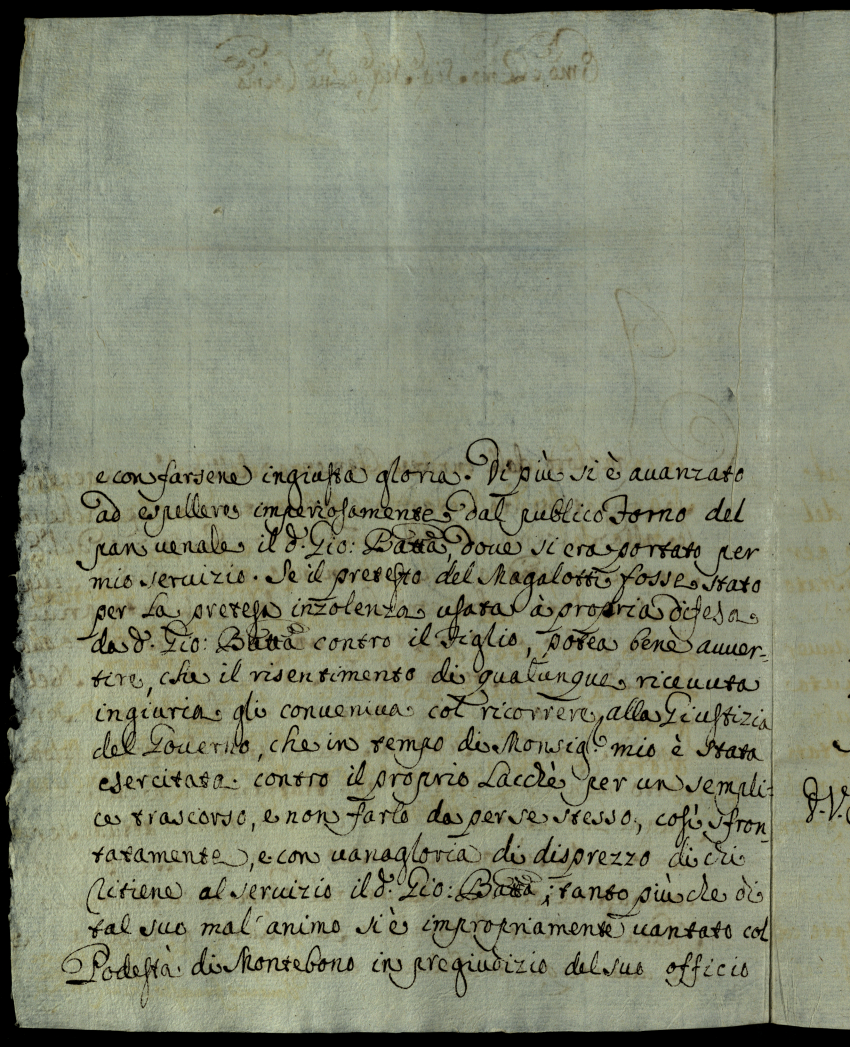 e con farsene ingiusta gloria. Di più si è avanzato
ad espellere imperiosamente dal publico Forno del
pan venale il d.º Gio: Batta, dove si era portato per
mio servizio. Se il pretesto del Magalotti fosse stato
per la pretesa inzolenza usata à propria difesa
da d.º Gio: Batta contro il Figlio, potea bene avver-
tire, che il risentimento di qualunque ricevuta
ingiuria gli conveniva col ricorrere alla Giustizia
del Governo, che in tempo di Monsig.r mio è stata
esercitata contro il proprio Lacchè per un sempli-
ce trascorso, e non farlo da per se stesso, così sfron-
tatamente, e con vanagloria di disprezzo di chi
ritiene al servizio il d.º Gio: Batta; tanto più che di
tal suo mal'animo si è impropriamente vantato col
Podestà di Montebono in pregiudizio del suo officio